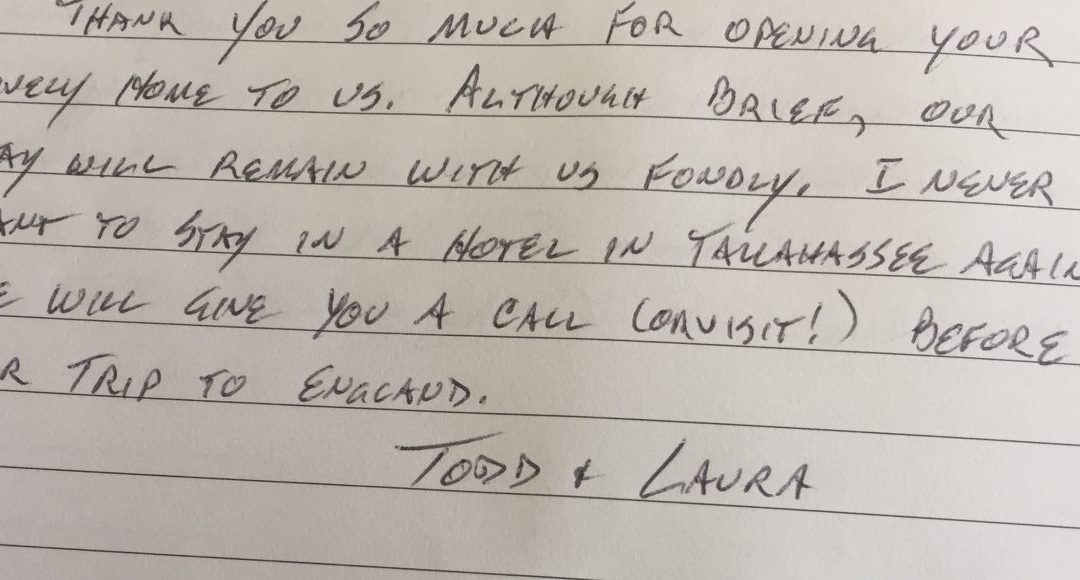 THANK YOU SO MUCH FOR OPENING YOUR
VELY HOME TO US. ALTHOUGH BRIEF, OUR
AY WILL REMAIN WITH US FONDLY. I NEVER
ANT TO STAY IN A HOTEL IN TALLAHASSEE AGAIN
E WILL GIVE YOU A CALL (OR VISIT!) BEFORE
R TRIP TO ENGLAND.
TODD & LAURA